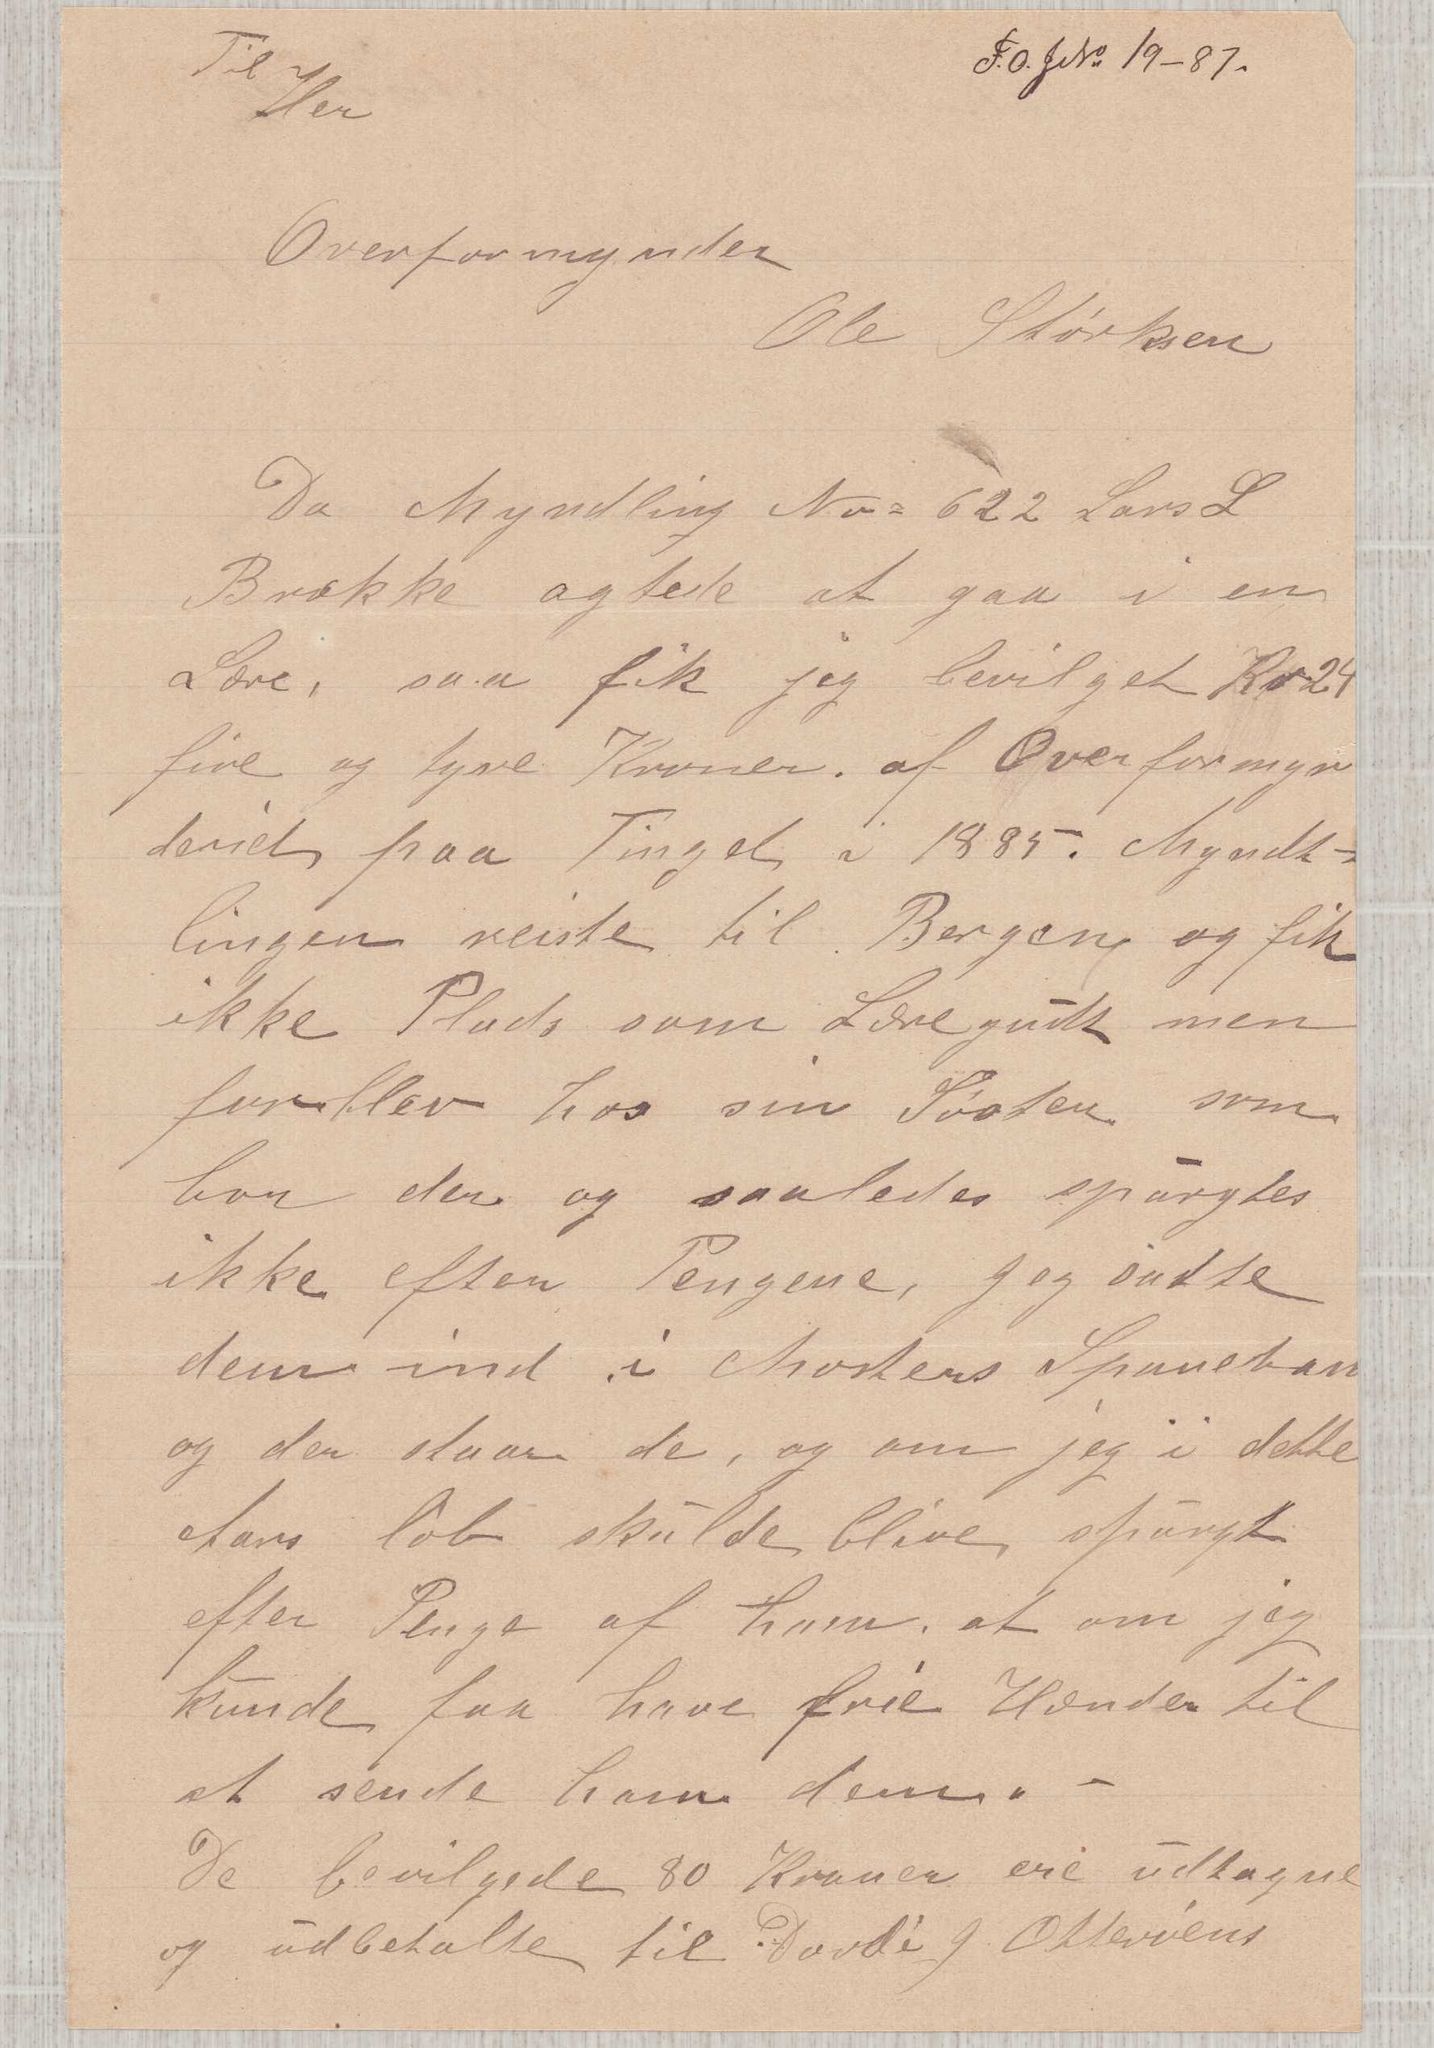 Til
Her
F.O. J.No. 19-87.
Overformynder
Ole Størksen
Da Myndling No= 622 Lars L
Brække agtede at gaa i en
Lære, saa fik jeg bevilget Kr 24
fire og tyve Kroner. af Overformyn
deriet paa Tinget i 1885. Myndt-
lingen reiste til Bergen og fik
ikke Plads som Læregudt men
forblev hos sin Søster som
bor der og saaledes spurgtes
ikke efter Pengene, jeg sadte
dem ind i Mosters Spareban
og der staar de, og om jeg i dette
Aars løb skulde blive spurgt
efter Penge af ham. at om jeg
kunde faa have frie Hænder til
at sende ham dem. -
De bevilgede 80 Kroner ere udtagne
og udbetalte til Dordi J. Otterøens